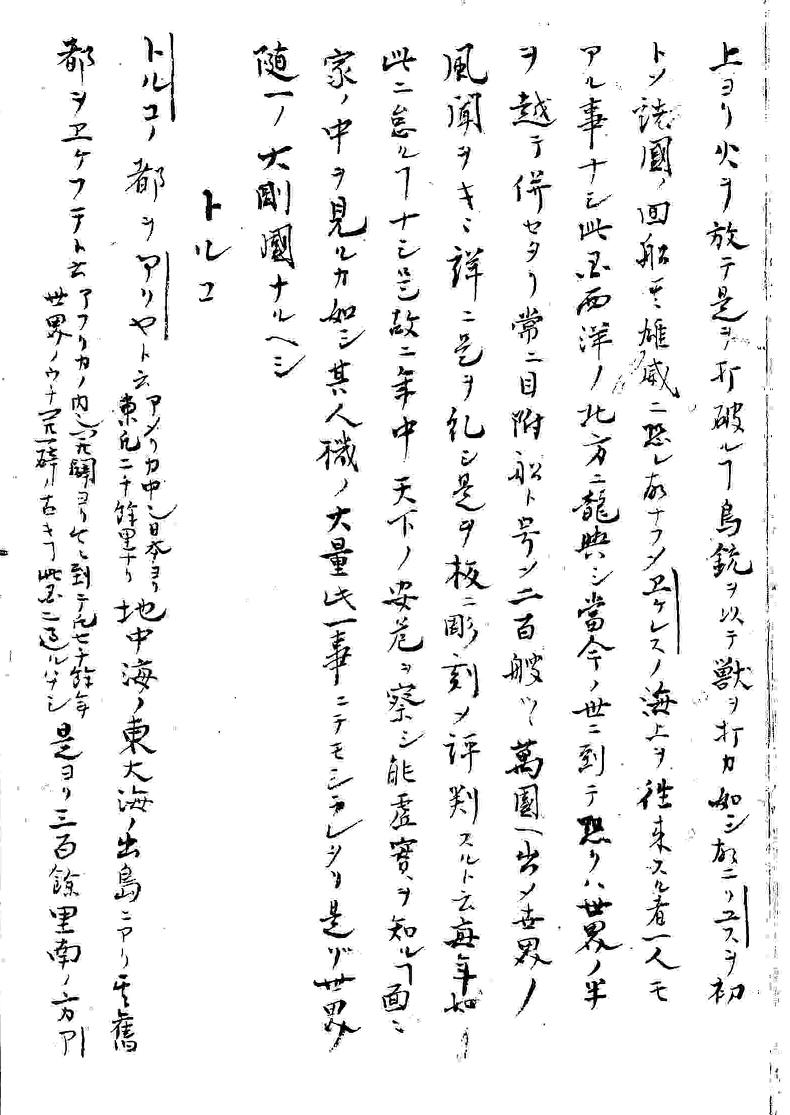 上ヨリ火ヲ放テ是ヲ打破ルヿ鳥銃ヲ以テ獣ヲ打カ如シ故ニリユスヲ初
トメ諸國ノ回船其雄威ニ恐レ故ナフメヱケレスノ海上ヲ徃来スル者一人モ
アル事ナシ此国西洋ノ北方ニ龍興シ當今ノ世ニ到テ恐リハ世界ノ半
ヲ越テ併セタリ常ニ目附船ト号メ二百艘ツヽ萬國ヘ出メ世界ノ
風聞ヲキヽ詳ニ是ヲ糺シ是ヲ板ニ彫刻メ評判スルト云毎年如
此ニ怠ルヿナシ是故ニ年中天下ノ安危ヲ察シ能虚實ヲ知ルヿ面ニ
家ノ中ヲ見ルカ如シ其人機ノ大量此一事ニテモシラレタリ是ゾ世界
随一ノ大剛國ナルヘシ
トルコ
トルコノ都ヲアリヤト云アメリカ中也日本ヨリ東凡二千餘里ナリ地中海ノ東大海ノ出島ニアリ其舊
都ヲヱケフテト云アフリカノ内也開闢ヨリ今ニ到テ凡七千餘年世界ノウチ開闢ノ古キヿ此国ニ過ルハナシ是ヨリ三百餘里南ノ方アリ